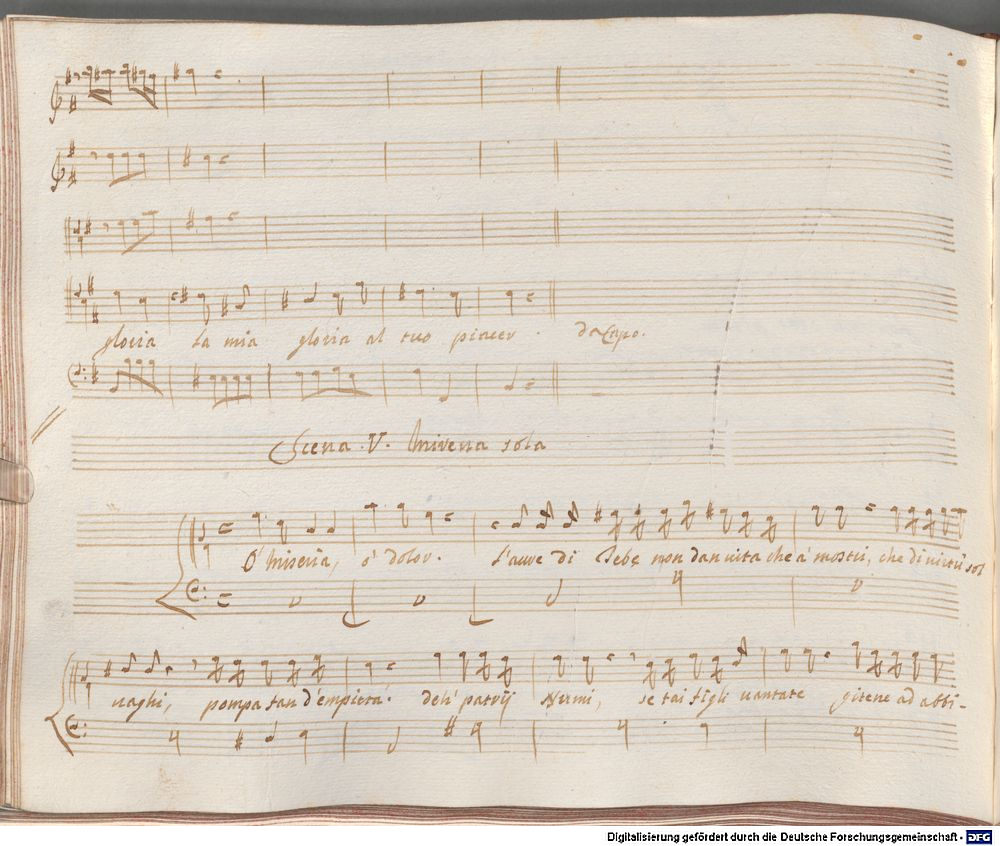 gloria la mia gloria al tuo piacer. da Capo.
Scena. V. sola
O' miseria, o' dolor. L'aure di Tebe non dan vita che a' mostri, che di virtù sol
uaghi, pompa fan d'empieta. deh' patrij Numi, se tai figli uantate gitene ad abbi-
Digitalisierung gefördert durch die Deutsche Forschungsgemeinschaft - DFG